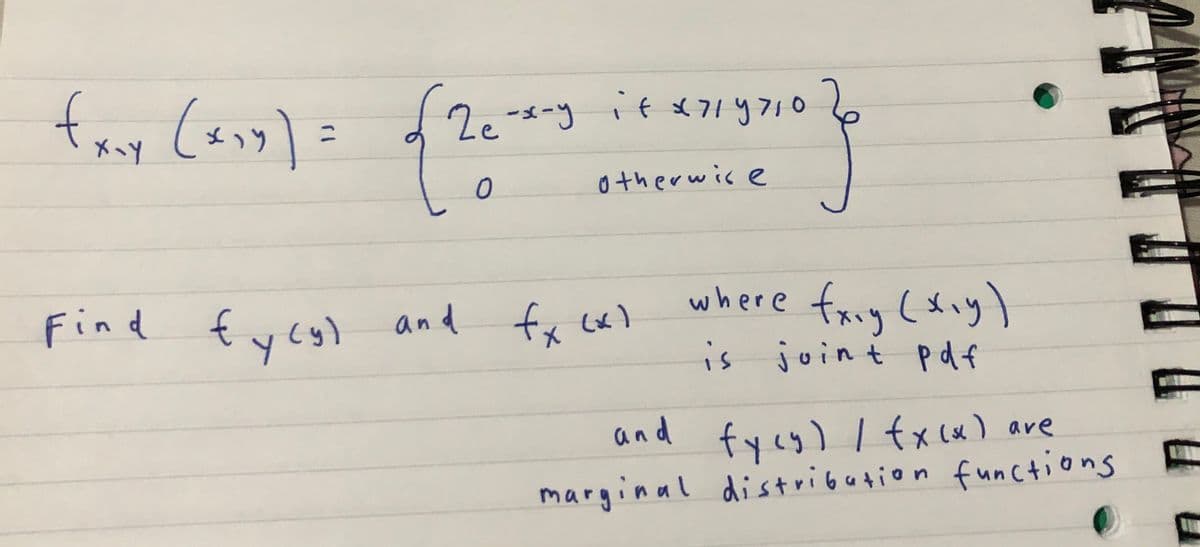 fx,y (x,y) = { 2e^-x-y if x≥y≥0 }
0 otherwise
Find fy(y) and fx(x) where fx,y (x,y)
is joint pdf
and fy(y) / fx(x) are
marginal distribution functions